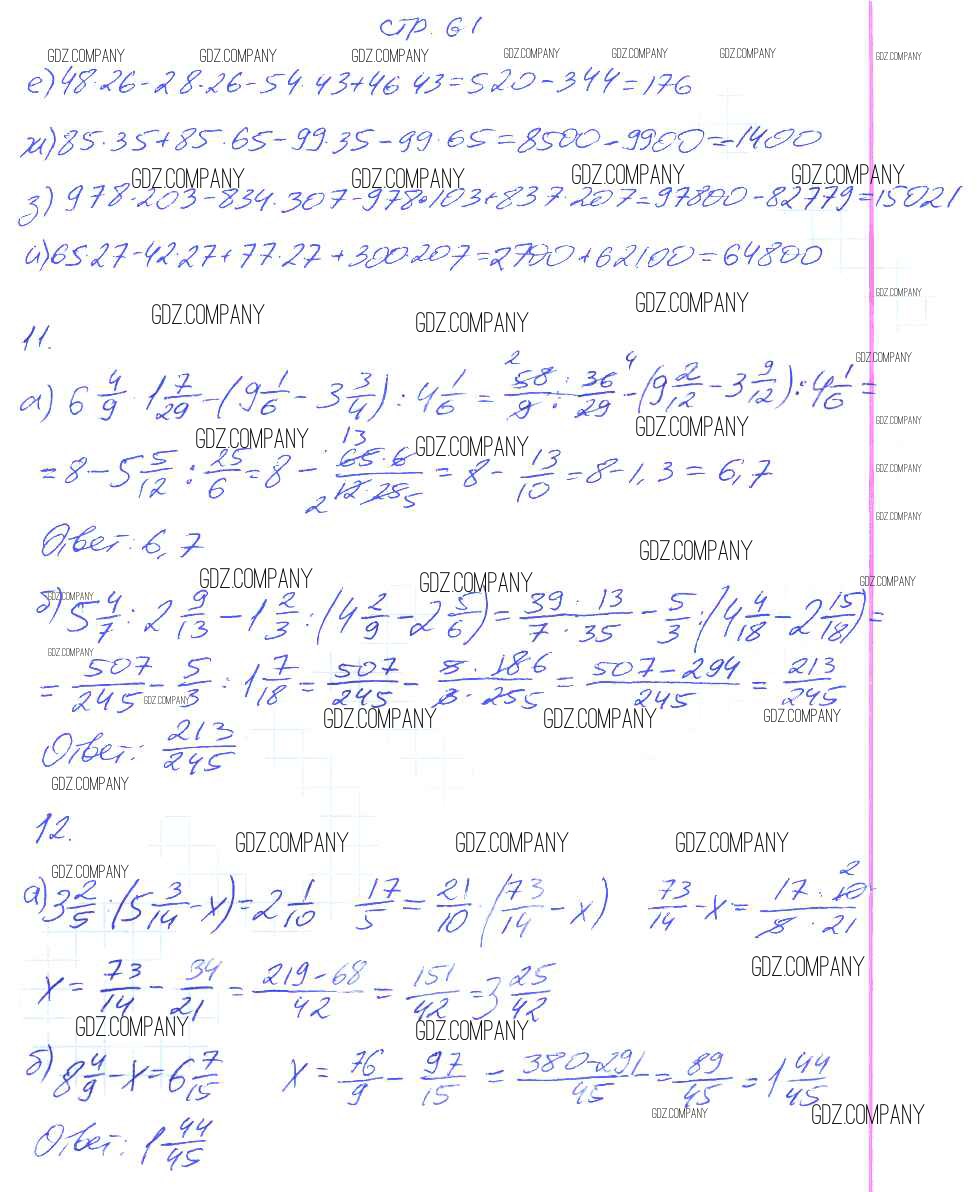 стр. 61
GDZ.COMPANY GDZ.COMPANY GDZ.COMPANY GDZ.COMPANY GDZ.COMPANY GDZ.COMPANY GDZ.COMPANY
е) 48·26-28·26-54·43+46·43=520-344=176
ж) 85·35+85·65-99·35-99·65=8500-9900=-1400
GDZ.COMPANY GDZ.COMPANY GDZ.COMPANY GDZ.COMPANY
з) 978·203-834·307-978·103+837·207=97800-82779=15021
и) 65·27-42·27+77·27+300·207=2700+62100=64800
GDZ.COMPANY GDZ.COMPANY GDZ.COMPANY GDZ.COMPANY
11.
GDZ.COMPANY
а) 6 4/9 · 1 7/29 - (9 1/6 - 3 3/4) : 4 1/6 = 2 58 : 36 4 / 9 : 29 - (9 2/12 - 3 9/12) : 4 1/6 =
GDZ.COMPANY GDZ.COMPANY GDZ.COMPANY GDZ.COMPANY
= 8 - 5 5/12 : 25/6 = 8 - 13 65·6 / 2 12·25 5 = 8 - 13/10 = 8-1,3 = 6,7
GDZ.COMPANY
GDZ.COMPANY
Ответ: 6,7
GDZ.COMPANY
GDZ.COMPANY GDZ.COMPANY GDZ.COMPANY GDZ.COMPANY
б) 5 4/7 : 2 9/13 - 1 2/3 : (4 2/9 - 2 5/6) = 39 · 13 / 7 · 35 - 5/3 : (4 4/18 - 2 15/18) =
GDZ.COMPANY
= 507/245 - 5/3 : 1 7/18 = 507/245 - 5 · 18 6 / 3 · 25 5 = 507-294 / 245 = 213/245
GDZ.COMPANY GDZ.COMPANY GDZ.COMPANY GDZ.COMPANY
Ответ: 213/245
GDZ.COMPANY
12.
GDZ.COMPANY GDZ.COMPANY GDZ.COMPANY
GDZ.COMPANY
а) 3 2/5 : (5 3/14 - x) = 2 1/10 17/5 = 21/10 · (73/14 - x) 73/14 - x = 17 · 10 2 / 5 · 21
GDZ.COMPANY
x = 73/14 - 34/21 = 219-68 / 42 = 151/42 = 3 25/42
GDZ.COMPANY GDZ.COMPANY
б) 8 4/9 - x = 6 7/15 x = 76/9 - 97/15 = 380-291 / 45 = 89/45 = 1 44/45
GDZ.COMPANY GDZ.COMPANY
Ответ: 1 44/45